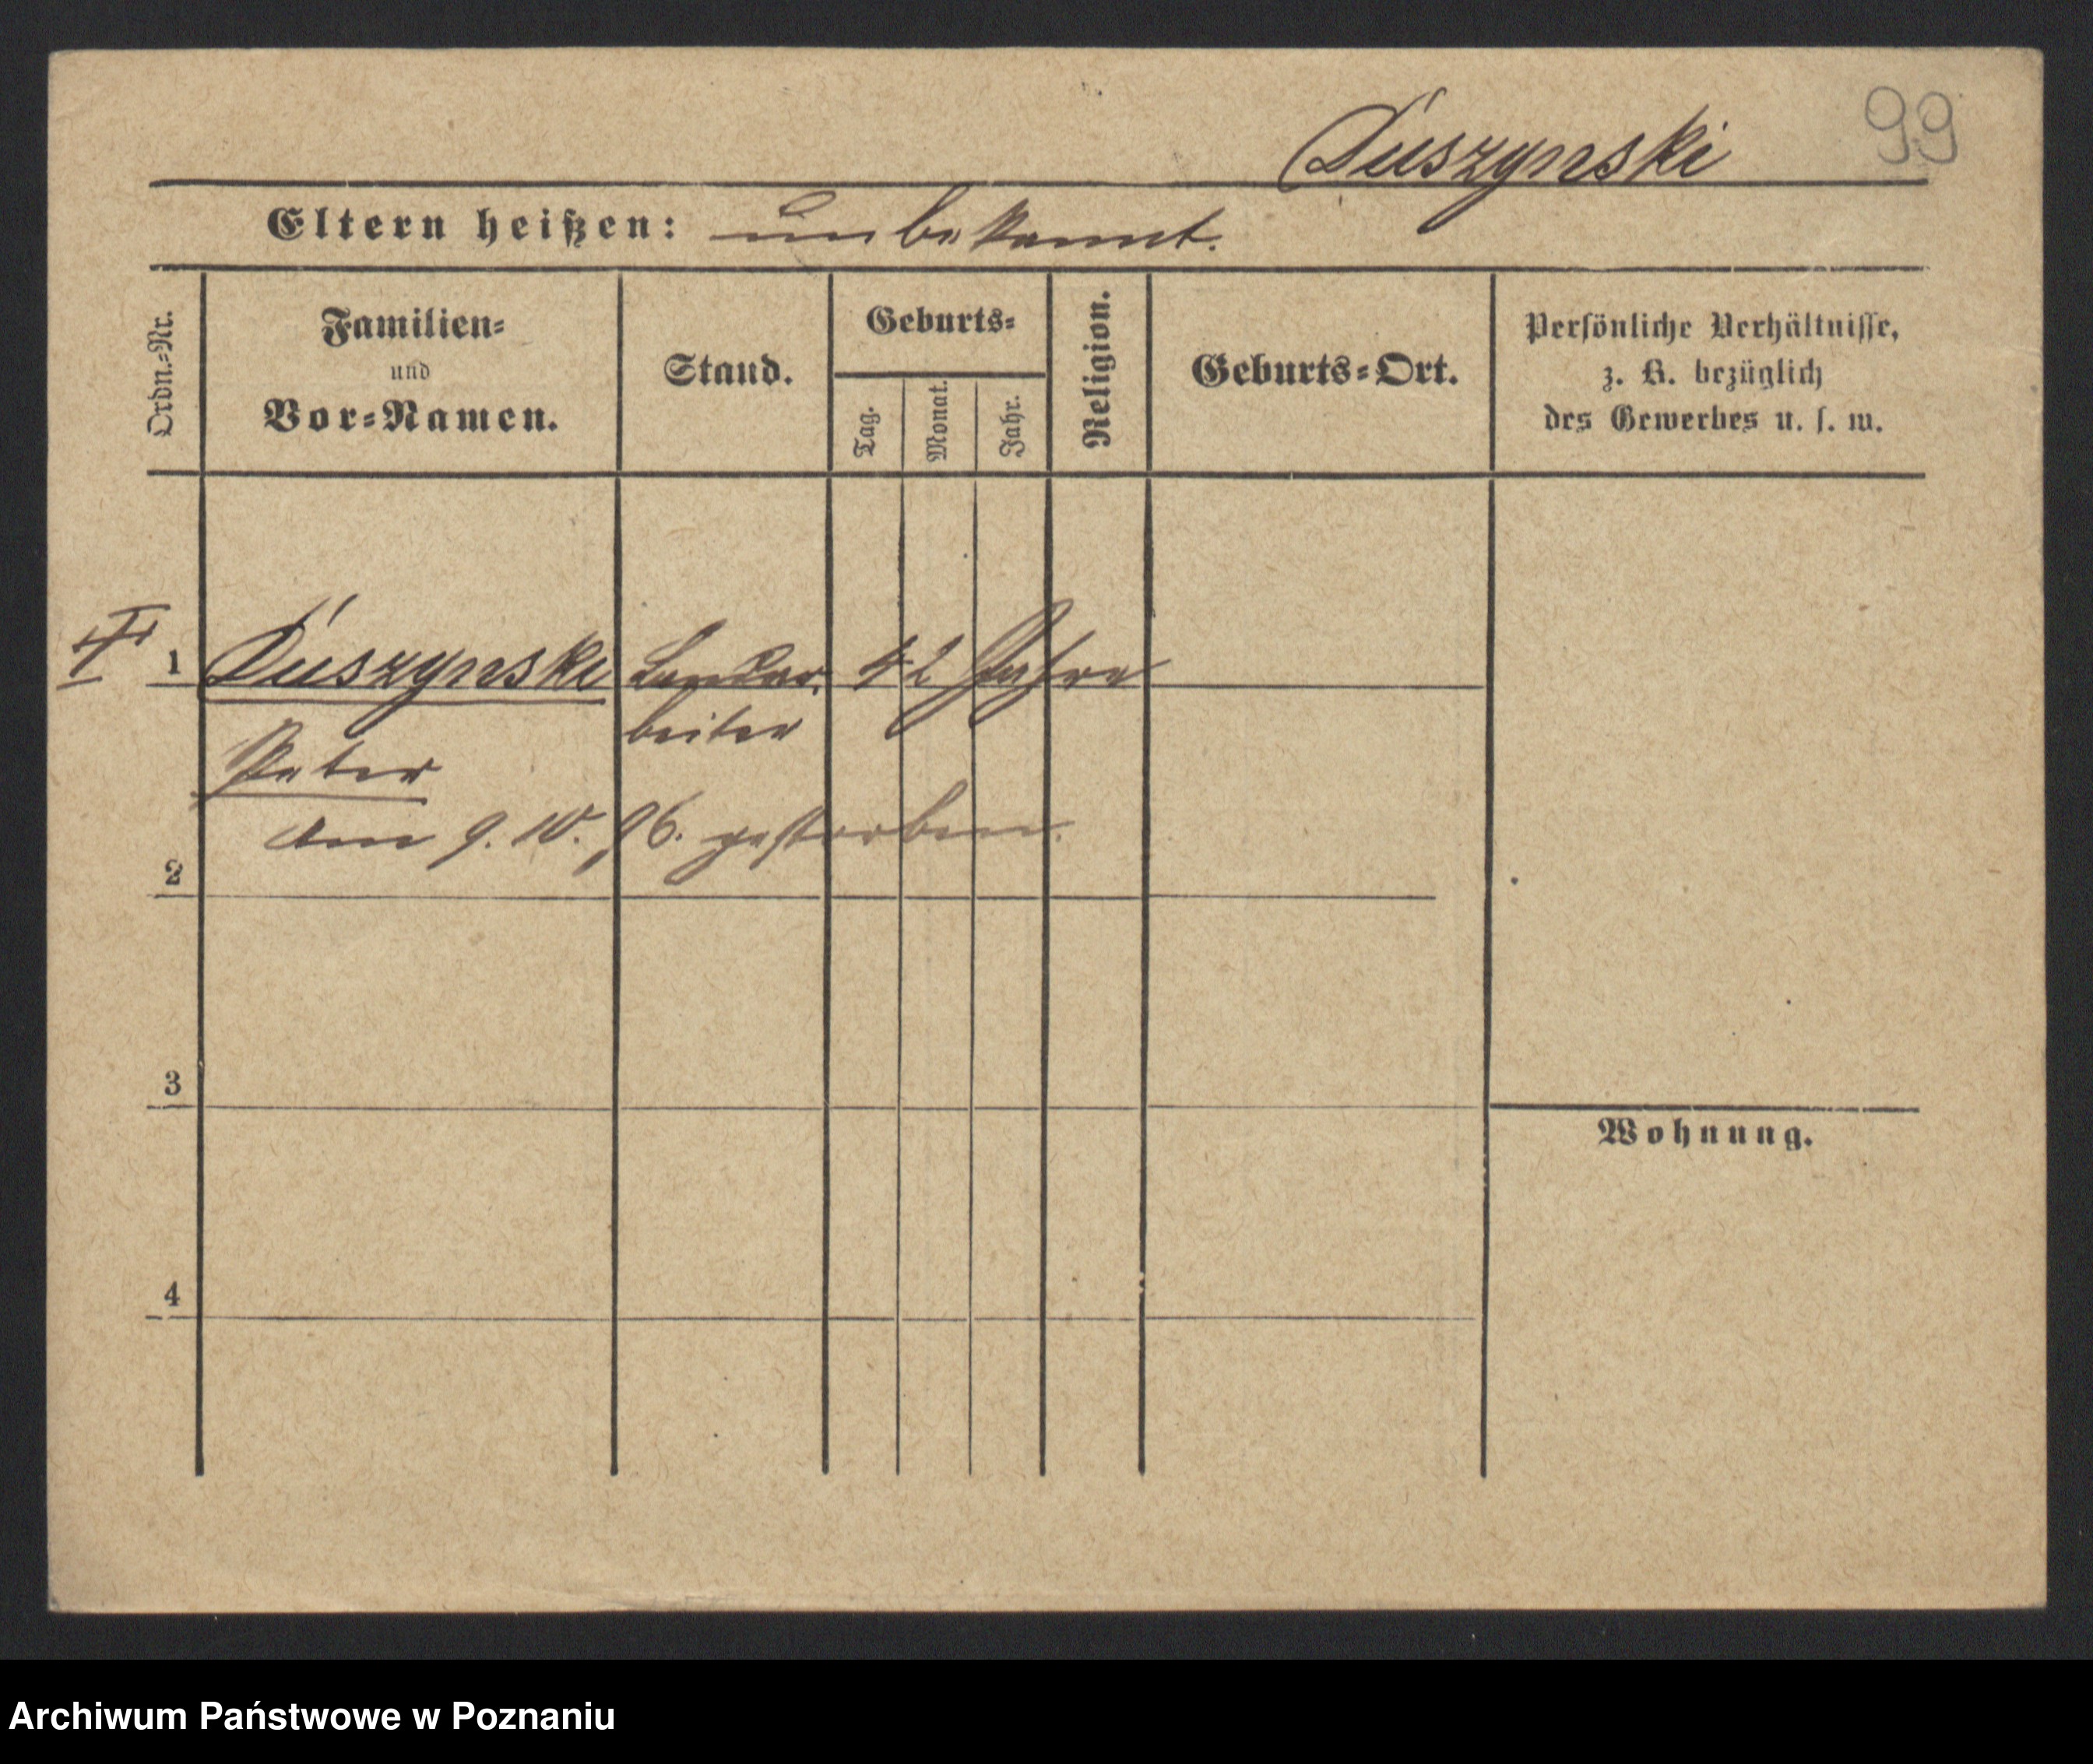 Duszynski 99
Eltern heißen: unbekannt.
Ordn.=Nr.
Familien=
und
Vor=Namen.
Stand.
Geburts=
Tag.
Monat.
Jahr.
Religion.
Geburts=Ort.
Persönliche Verhältnisse,
z. B. bezüglich
des Gewerbes u. s. w.
1 Duszynski Landar 42 Jahre
beiter
Peter
am 9. 10. 96. gestorben.
2
3
Wohnung.
4
Archiwum Państwowe w Poznaniu